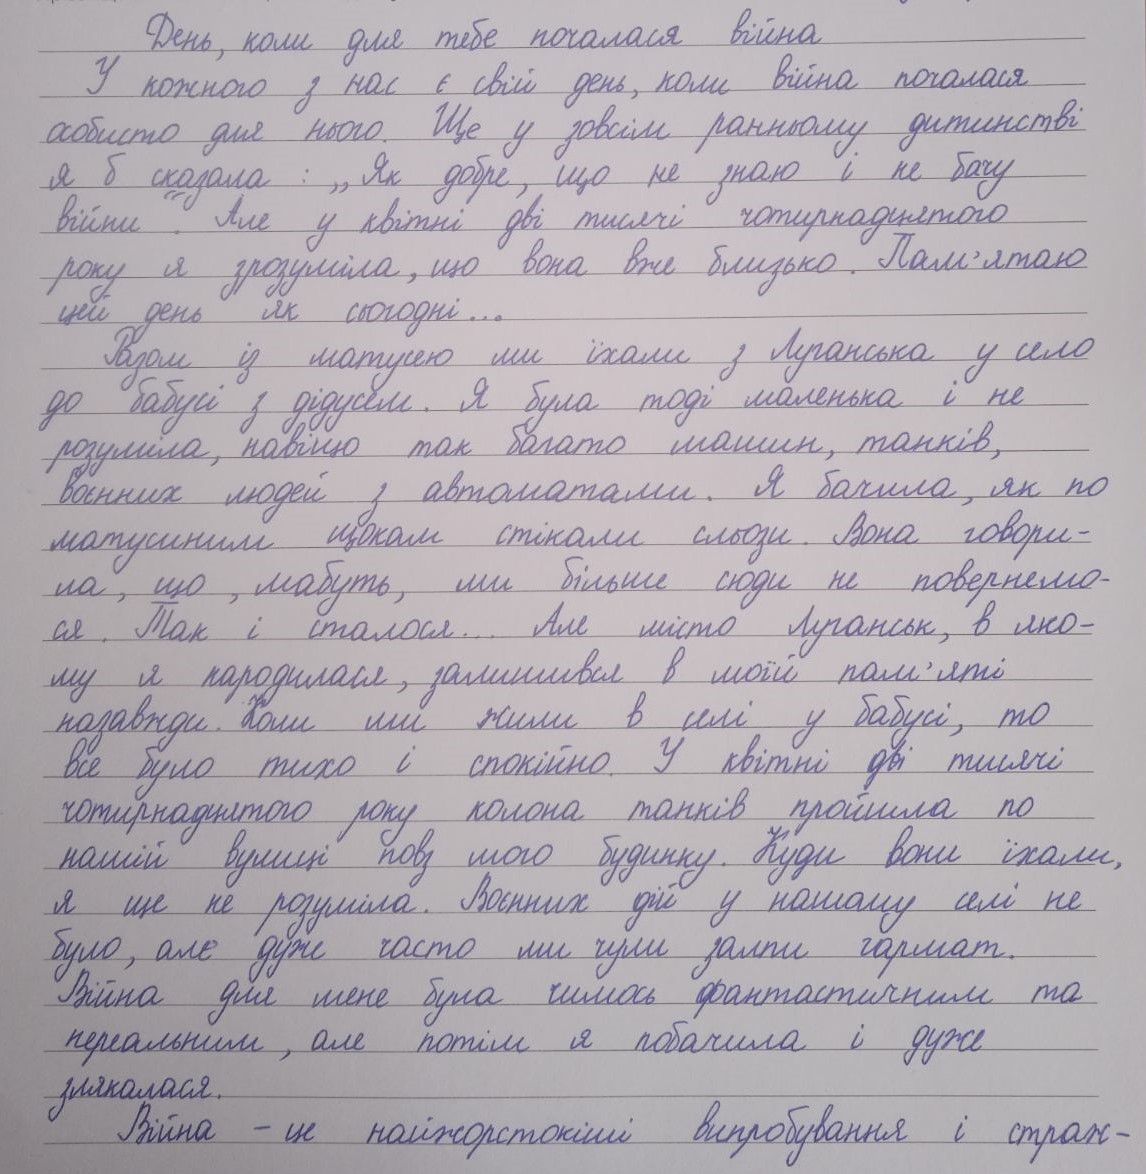 День, коли для тебе почалася війна
У кожного з нас є свій день, коли війна почалася
особисто для нього. Ще у зовсім ранньому дитинстві
я б сказала : „Як добре, що не знаю і не бачу
війни". Але у квітні дві тисячі чотирнадцятого
року я зрозуміла, що вона вже близько. Пам'ятаю
цей день як сьогодні...
Разом із матусею ми їхали з Луганська у село
до бабусі з дідусем. Я була тоді маленька і не
розуміла, навіщо так багато машин, танків,
воєнних людей з автоматами. Я бачила, як по
матусиним щокам стікали сльози. Вона говори-
ла, що, мабуть, ми більше сюди не повернемо-
ся. Так і сталося... Але місто Луганськ, в яко-
му я народилася, залишився в моїй пам'яті
назавжди. Коли ми жили в селі у бабусі, то
все було тихо і спокійно. У квітні дві тисячі
чотирнадцятого року колона танків пройшла по
нашій вулиці повз мого будинку. Куди вони їхали,
я ще не розуміла. Воєнних дій у нашому селі не
було, але дуже часто ми чули залпи гармат.
Війна для мене була чимось фантастичним та
нереальним, але потім я побачила і дуже
злякалася.
Війна – це найжорстокіші випробування і страж-